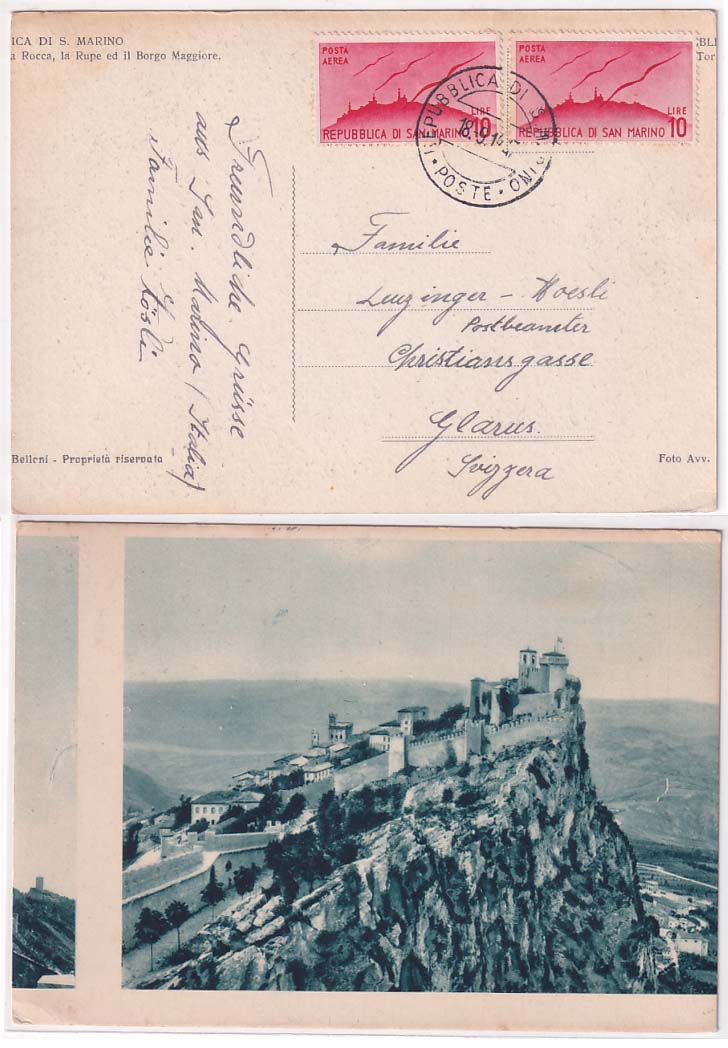 ICA DI S. MARINO
a Rocca, la Rupe ed il Borgo Maggiore.
BLI
Tor
POSTA
AEREA
LIRE
10
REPUBBLICA DI SAN MARINO
POSTA
AEREA
LIRE
10
REPUBBLICA DI SAN MARINO
REPUBBLICA DI S. MARINO
18.9.
POSTE
Freundliche Grüsse
aus San. Marino / Italia)
Familie Hösli
Familie
Luzinger - Hoesli
Postbeamter
Christiansgasse
Glarus.
Svizzera
Belloni - Proprietà riservata
Foto Avv.